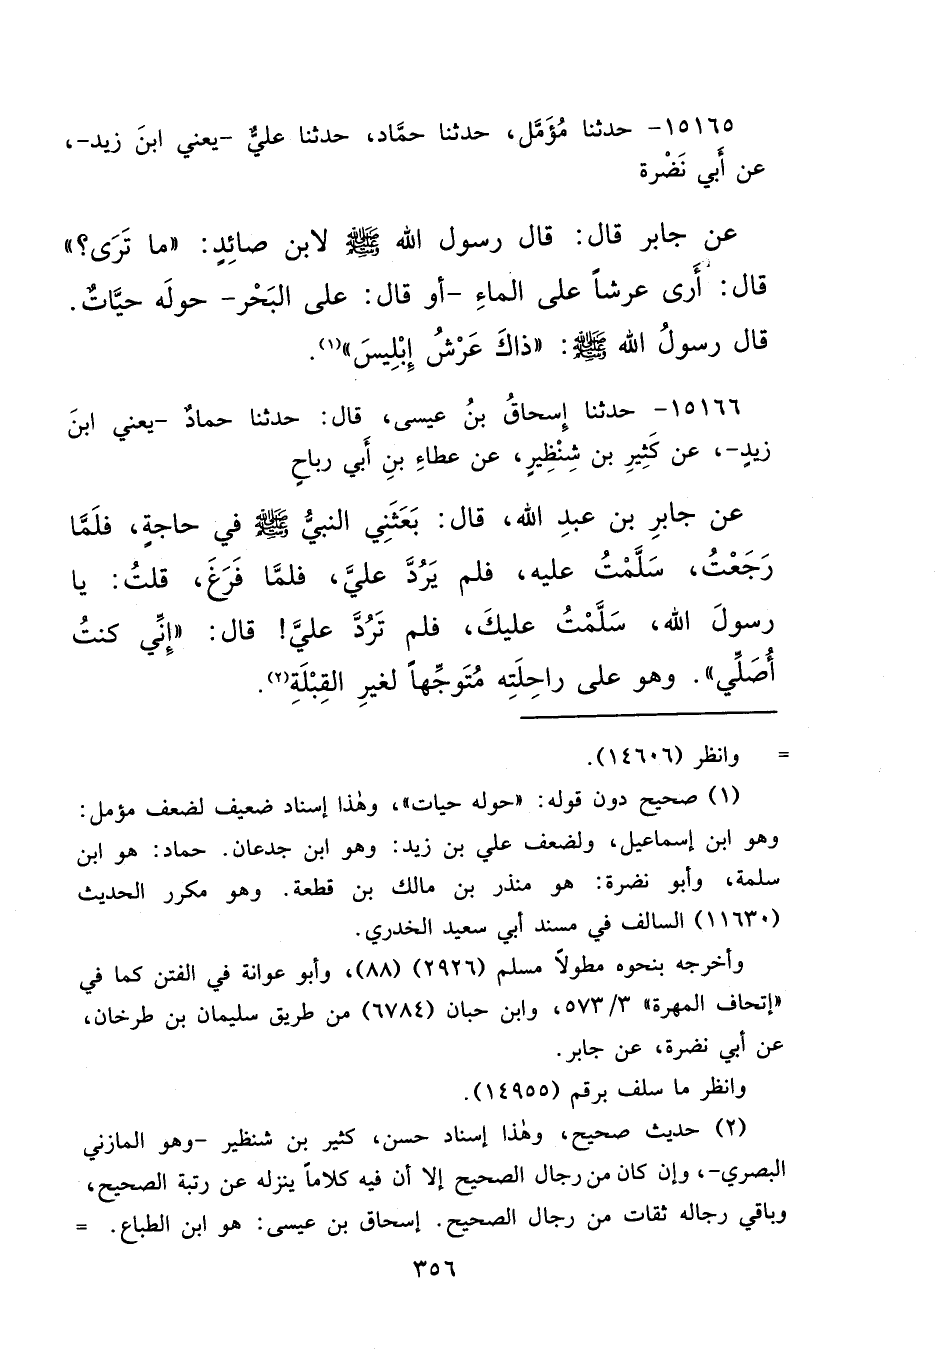 ١٥١٦٥- حدثنا مُؤَمَّل، حدثنا حمَّاد، حدثنا عليٌّ -يعني ابنَ زيد-،
عن أَبي نَضْرة
عن جابر قال: قال رسول الله ﷺ لابن صائِدٍ: «ما تَرَى؟»
قال: أَرى عرشاً على الماءِ -أو قال: على البَحْر- حولَه حيَّاتٌ.
قال رسولُ الله ﷺ: «ذاكَ عَرْشُ إِبْلِيسَ»(١).
١٥١٦٦- حدثنا إِسحاقُ بنُ عيسى، قال: حدثنا حمادٌ -يعني ابنَ
زيدٍ-، عن كَثِيرِ بن شِنْظِيرٍ، عن عطاءِ بنِ أَبي رباحٍ
عن جابرِ بن عبدِ الله، قال: بَعَثَنِي النبيُّ ﷺ في حاجةٍ، فلَمَّا
رَجَعْتُ، سَلَّمْتُ عليه، فلم يَرُدَّ عليَّ، فلمَّا فَرَغَ، قلتُ: يا
رسولَ الله، سَلَّمْتُ عليكَ، فلم تَرُدَّ عليَّ! قال: «إِنِّي كنتُ
أُصَلِّي». وهو على راحِلَتِه مُتَوجِّهاً لغيرِ القِبْلَةِ(٢).
= وانظر (١٤٦٠٦).
(١) صحيح دون قوله: «حوله حيات»، وهٰذا إسناد ضعيف لضعف مؤمل:
وهو ابن إسماعيل، ولضعف علي بن زيد: وهو ابن جدعان. حماد: هو ابن
سلمة، وأبو نضرة: هو منذر بن مالك بن قطعة. وهو مكرر الحديث
(١١٦٣٠) السالف في مسند أبي سعيد الخدري.
وأخرجه بنحوه مطولاً مسلم (٢٩٢٦) (٨٨)، وأبو عوانة في الفتن كما في
«إتحاف المهرة» ٥٧٣/٣، وابن حبان (٦٧٨٤) من طريق سليمان بن طرخان،
عن أبي نضرة، عن جابر.
وانظر ما سلف برقم (١٤٩٥٥).
(٢) حديث صحيح، وهٰذا إسناد حسن، كثير بن شنظير -وهو المازني
البصري-، وإن كان من رجال الصحيح إلا أن فيه كلاماً ينزله عن رتبة الصحيح،
وباقي رجاله ثقات من رجال الصحيح. إسحاق بن عيسى: هو ابن الطباع. =
٣٥٦